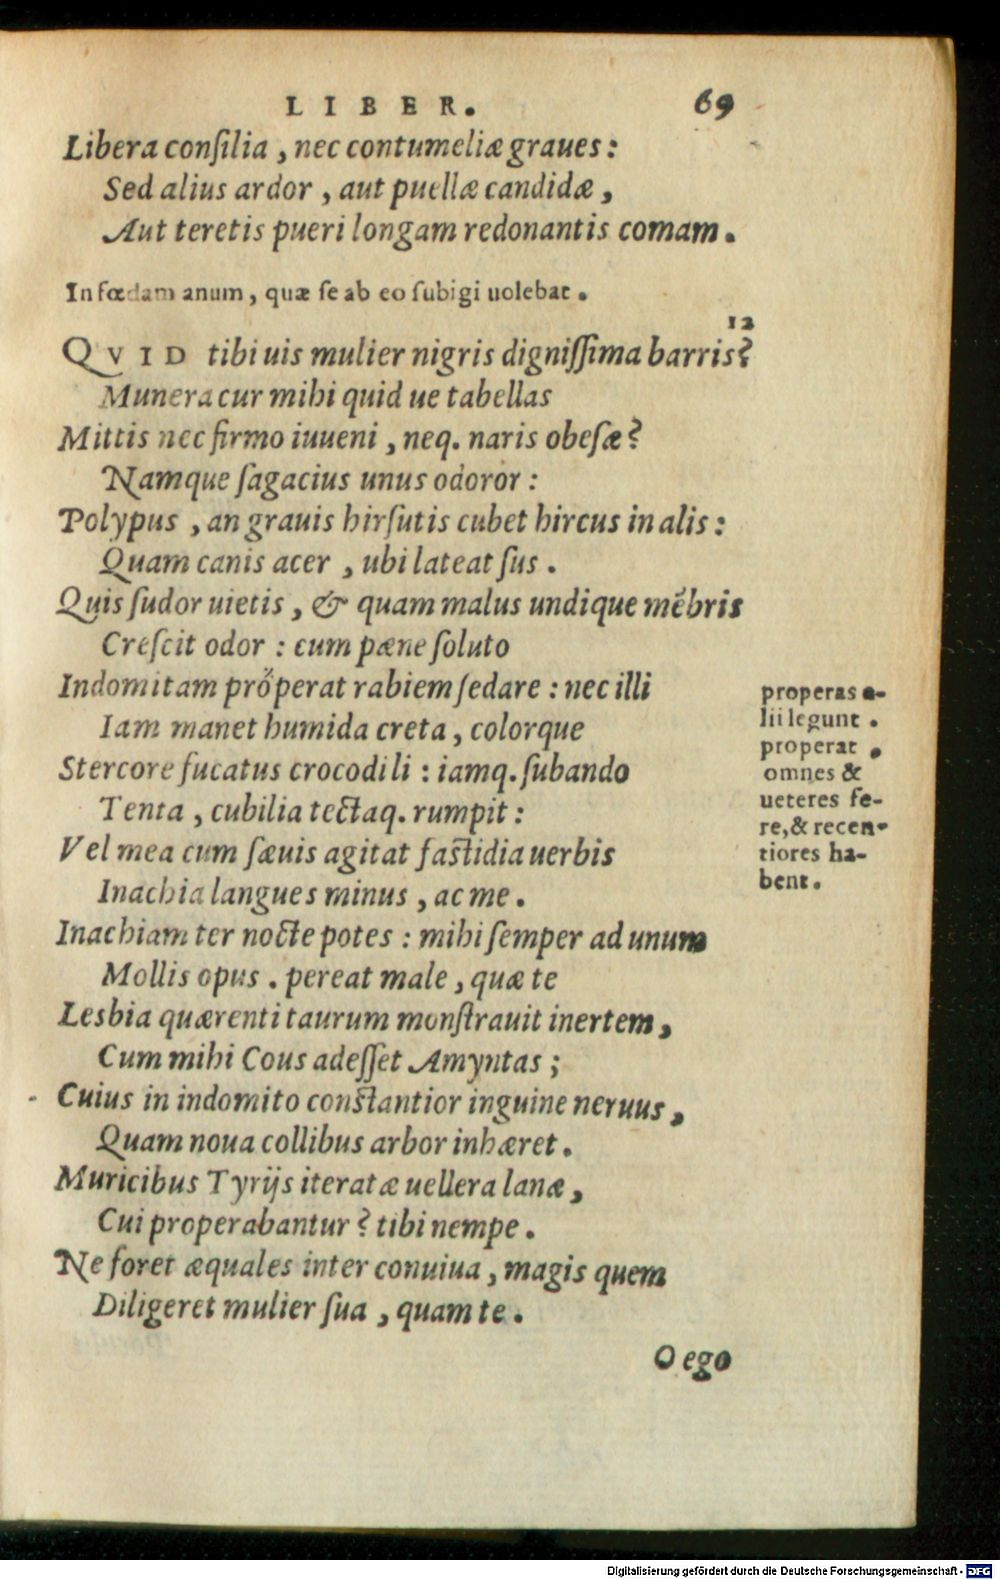 LIBER. 69
Libera conſilia, nec contumeliæ graues:
Sed alius ardor, aut puellæ candidæ,
Aut teretis pueri longam redonantis comam.
In fœdam anum, quæ ſe ab eo ſubigi uolebat.
12
QVID tibi uis mulier nigris digniſſima barris?
Munera cur mihi quid ue tabellas
Mittis nec firmo iuueni, neq. naris obeſæ?
Namque ſagacius unus odoror:
Polypus, an grauis hirſutis cubet hircus in alis:
Quam canis acer, ubi lateat ſus.
Quis ſudor uietis, & quam malus undique mẽbris
Creſcit odor: cum pæne ſoluto
Indomitam properat rabiem ſedare: nec illi
Iam manet humida creta, colorque
Stercore fucatus crocodili: iamq. ſubando
Tenta, cubilia tectaq. rumpit:
Vel mea cum ſæuis agitat faſtidia uerbis
Inachia langues minus, ac me.
Inachiam ter nocte potes: mihi ſemper ad unum
Mollis opus. pereat male, quæ te
Lesbia quærenti taurum monſtrauit inertem,
Cum mihi Cous adeſſet Amyntas;
Cuius in indomito conſtantior inguine neruus,
Quam noua collibus arbor inhæret.
Muricibus Tyrijs iteratæ uellera lanæ,
Cui properabantur? tibi nempe.
Ne foret æquales inter conuiua, magis quem
Diligeret mulier ſua, quam te.
O ego
properas a-
lii legunt.
properat.
omnes &
ueteres fe-
re, & recen-
tiores ha-
bent.
Digitalisierung gefördert durch die Deutsche Forschungsgemeinschaft - DFG